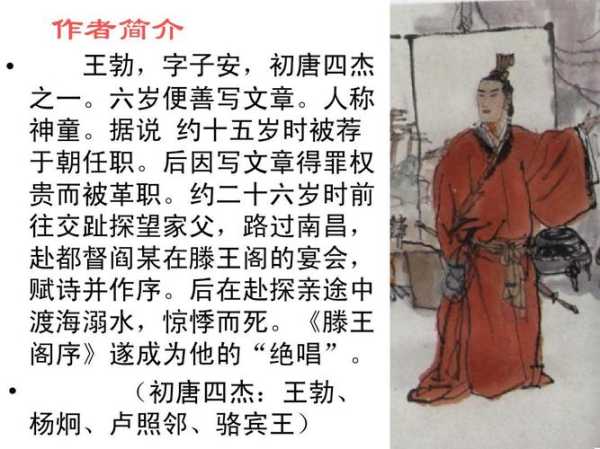 作者简介
• 王勃，字子安，初唐四杰
之一。六岁便善写文章。人称
神童。据说 约十五岁时被荐
于朝任职。后因写文章得罪权
贵而被革职。约二十六岁时前
往交趾探望家父，路过南昌，
赴都督阎某在滕王阁的宴会，
赋诗并作序。后在赴探亲途中
渡海溺水，惊悸而死。《滕王
阁序》遂成为他的“绝唱”。
• （初唐四杰：王勃、
杨炯、卢照邻、骆宾王）